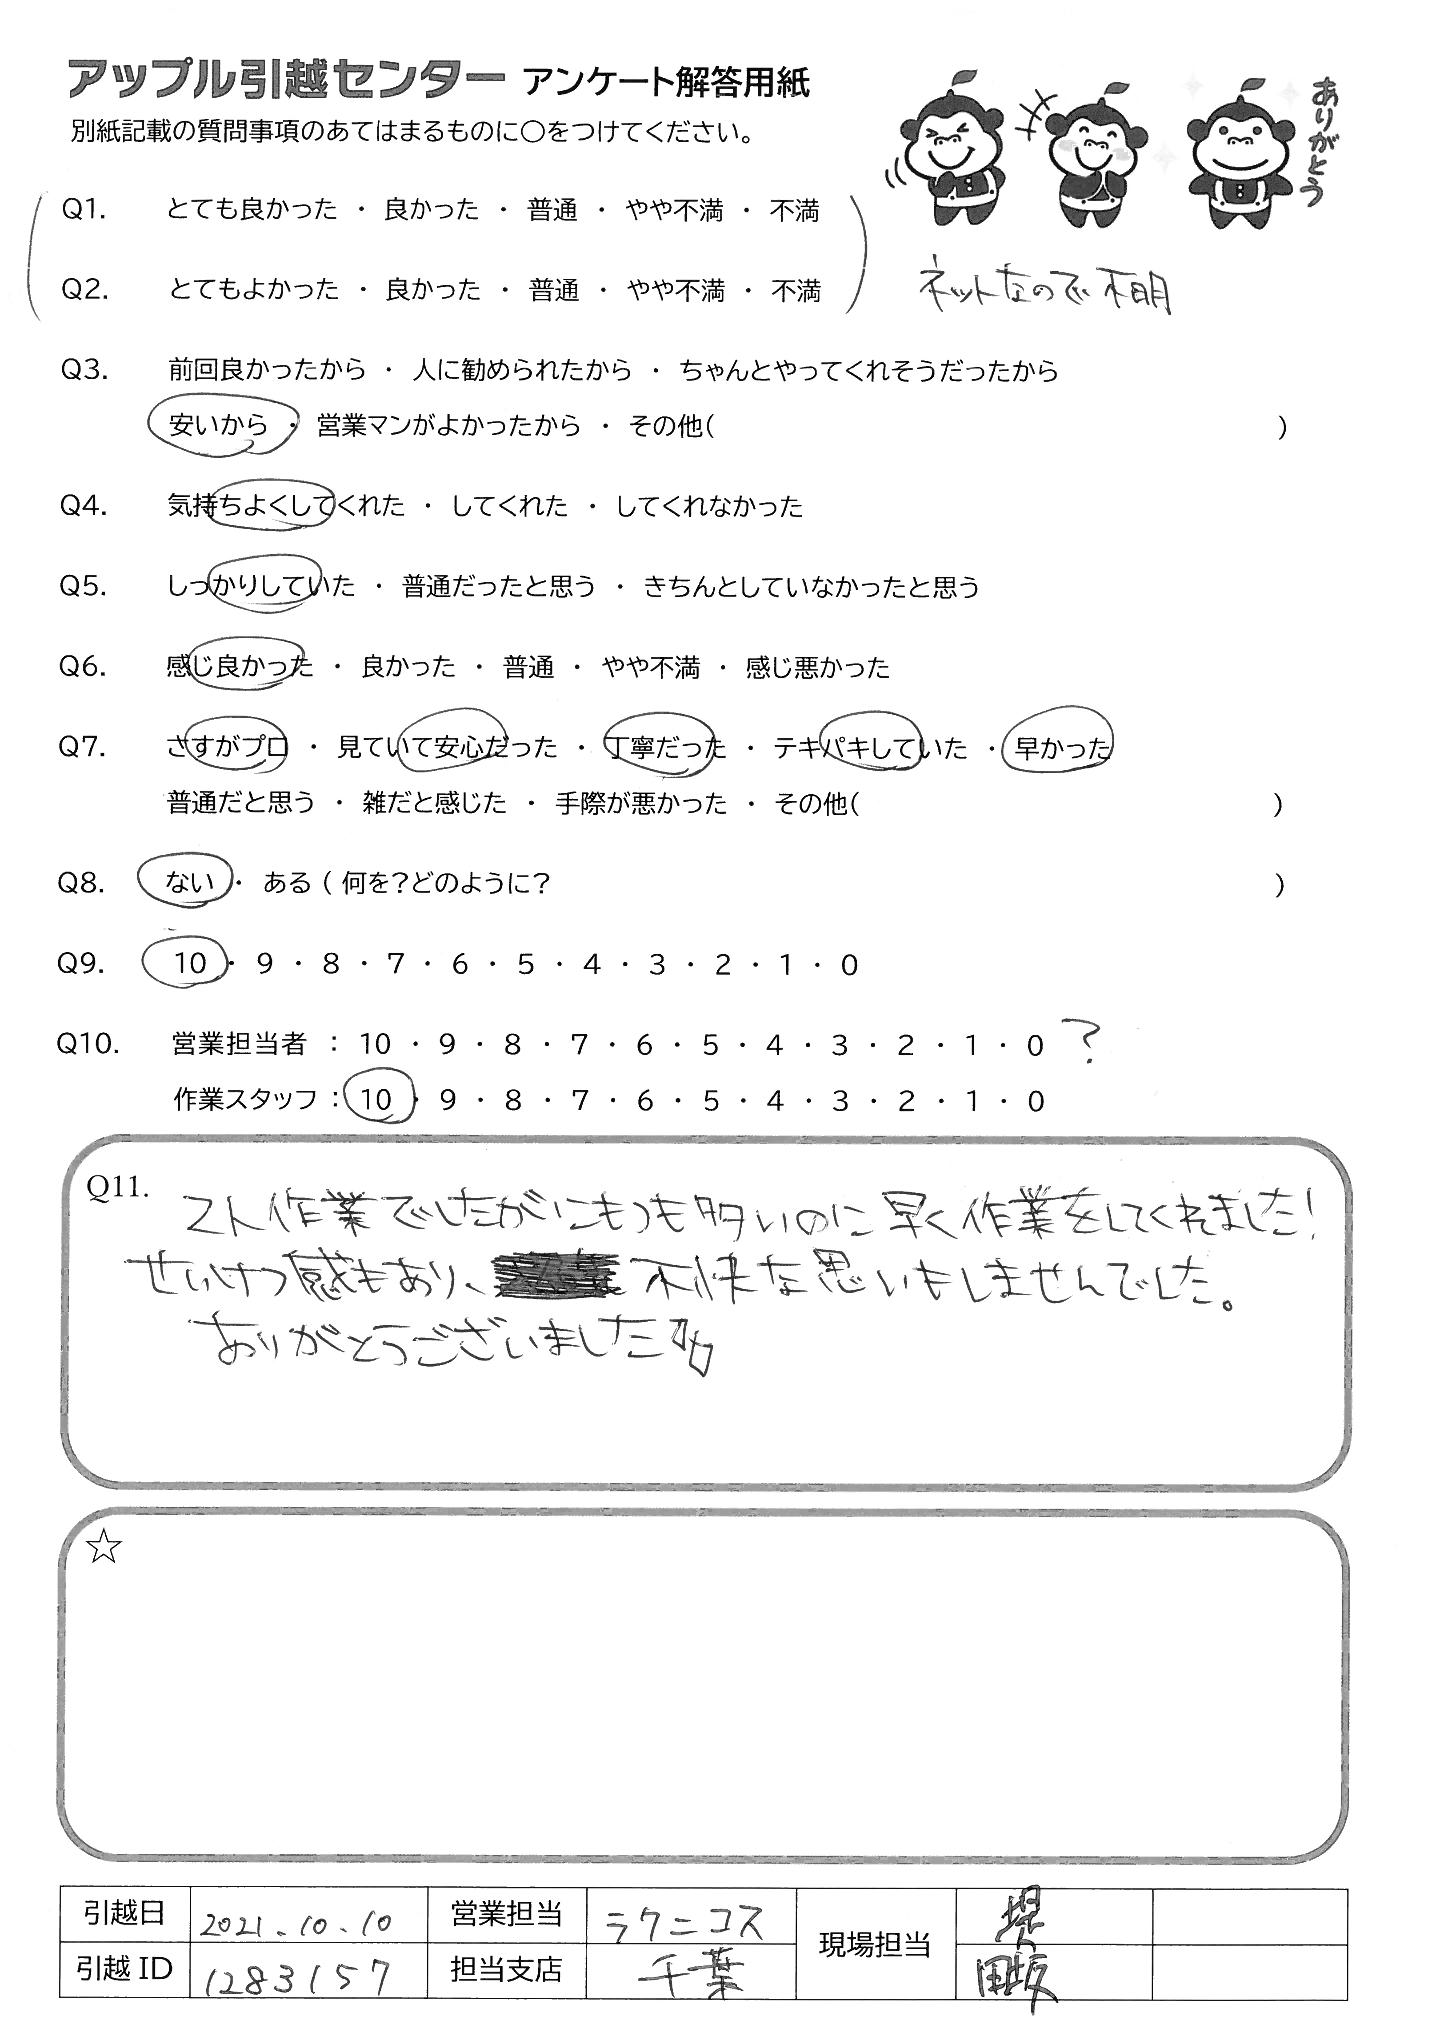 アップル引越センター アンケート解答用紙
別紙記載の質問事項のあてはまるものに〇をつけてください。
ありがとう
Q1. とても良かった ・ 良かった ・ 普通 ・ やや不満 ・ 不満
Q2. とてもよかった ・ 良かった ・ 普通 ・ やや不満 ・ 不満
ネットなので不明
Q3. 前回良かったから ・ 人に勧められたから ・ ちゃんとやってくれそうだったから
安いから ・ 営業マンがよかったから ・ その他( )
Q4. 気持ちよくしてくれた ・ してくれた ・ してくれなかった
Q5. しっかりしていた ・ 普通だったと思う ・ きちんとしていなかったと思う
Q6. 感じ良かった ・ 良かった ・ 普通 ・ やや不満 ・ 感じ悪かった
Q7. さすがプロ ・ 見ていて安心だった ・ 丁寧だった ・ テキパキしていた ・ 早かった
普通だと思う ・ 雑だと感じた ・ 手際が悪かった ・ その他( )
Q8. ない ・ ある ( 何を?どのように? )
Q9. 10 ・ 9 ・ 8 ・ 7 ・ 6 ・ 5 ・ 4 ・ 3 ・ 2 ・ 1 ・ 0
Q10. 営業担当者 : 10 ・ 9 ・ 8 ・ 7 ・ 6 ・ 5 ・ 4 ・ 3 ・ 2 ・ 1 ・ 0 ?
作業スタッフ : 10 ・ 9 ・ 8 ・ 7 ・ 6 ・ 5 ・ 4 ・ 3 ・ 2 ・ 1 ・ 0
Q11. 2人作業でしたがにもつも多いのに早く作業をしてくれました!
せいけつ感もあり、不快な思いもしませんでした。
ありがとうございました
☆
引越日 2021.10.10 営業担当 ラクニコス 現場担当 堤
引越 ID 1283157 担当支店 千葉